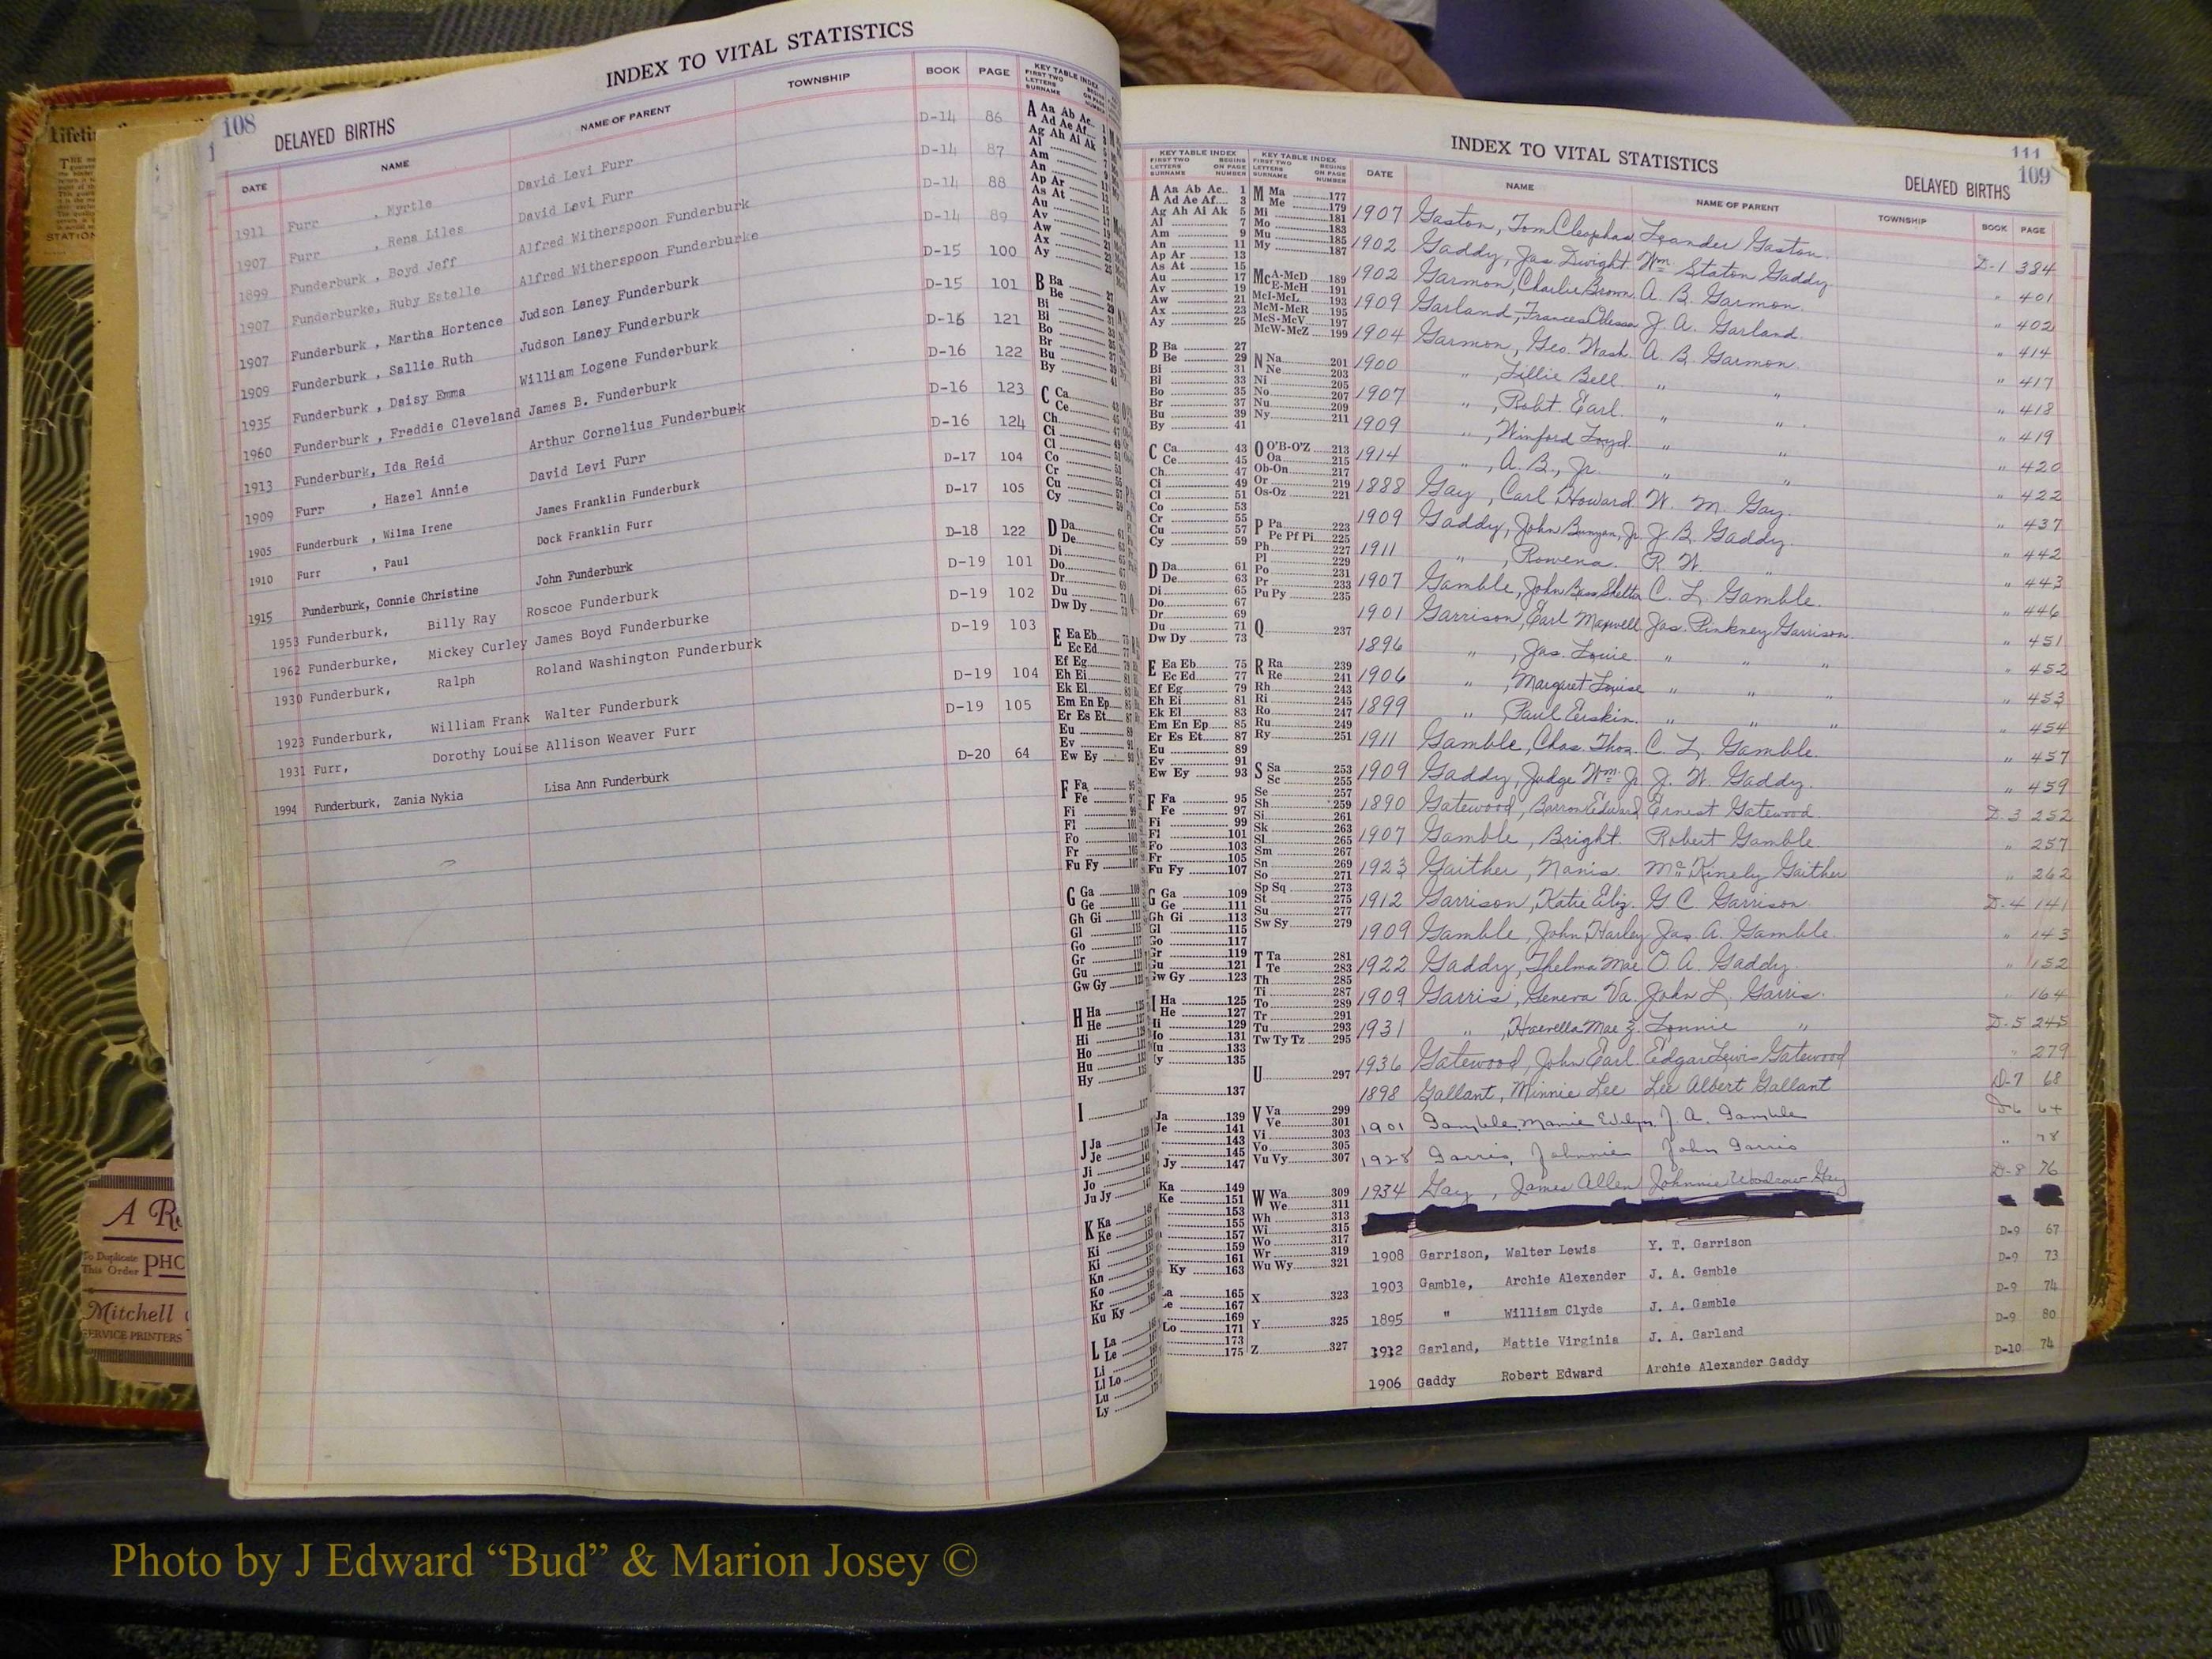 INDEX TO VITAL STATISTICS
108
DELAYED BIRTHS
DATE NAME NAME OF PARENT TOWNSHIP BOOK PAGE
1911 Furr , Myrtle David Levi Furr D-14 86
1907 Furr , Rena Liles David Levi Furr D-14 87
1899 Funderburk , Boyd Jeff Alfred Witherspoon Funderburk D-14 88
1907 Funderburke, Ruby Estelle Alfred Witherspoon Funderburke D-14 89
1907 Funderburk , Martha Hortence Judson Laney Funderburk D-15 100
1909 Funderburk , Sallie Ruth Judson Laney Funderburk D-15 101
1935 Funderburk , Daisy Emma William Logene Funderburk D-16 121
1960 Funderburk , Freddie Cleveland James B. Funderburk D-16 122
1913 Funderburk, Ida Reid Arthur Cornelius Funderburk D-16 123
1909 Furr , Hazel Annie David Levi Furr D-16 124
1905 Funderburk , Wilma Irene James Franklin Funderburk D-17 104
1910 Furr , Paul Dock Franklin Furr D-17 105
1915 Funderburk, Connie Christine John Funderburk D-18 122
1953 Funderburk, Billy Ray Roscoe Funderburk D-19 101
1962 Funderburke, Mickey Curley James Boyd Funderburke D-19 102
1930 Funderburk, Ralph Roland Washington Funderburk D-19 103
1923 Funderburk, William Frank Walter Funderburk D-19 104
1931 Furr, Dorothy Louise Allison Weaver Furr D-19 105
1994 Funderburk, Zania Nykia Lisa Ann Funderburk D-20 64
INDEX TO VITAL STATISTICS
111
109
DELAYED BIRTHS
KEY TABLE INDEX KEY TABLE INDEX
FIRST TWO LETTERS SURNAME BEGINS ON PAGE NUMBER
DATE NAME NAME OF PARENT TOWNSHIP BOOK PAGE
A Aa Ab Ac 1
Ad Ae Af 3
Ag Ah Ai Ak 5
Al 7
Am 9
An 11
Ap Ar 13
As At 15
Au 17
Av 19
Aw 21
Ax 23
Ay 25
B Ba 27
Be 29
Bi 31
Bl 33
Bo 35
Br 37
Bu 39
By 41
C Ca 43
Ce 45
Ch 47
Ci 49
Cl 51
Co 53
Cr 55
Cu 57
Cy 59
D Da 61
De 63
Di 65
Do 67
Dr 69
Du 71
Dw Dy 73
E Ea Eb 75
Ec Ed 77
Ef Eg 79
Eh Ei 81
Ek El 83
Em En Ep 85
Er Es Et 87
Eu 89
Ev 91
Ew Ey 93
F Fa 95
Fe 97
Fi 99
Fl 101
Fo 103
Fr 105
Fu Fy 107
G Ga 109
Ge 111
Gh Gi 113
Gl 115
Go 117
Gr 119
Gu 121
Gw Gy 123
Ha 125
He 127
129
131
133
135
137
Ja 139
Je 141
143
145
Jy 147
Ka 149
Ke 151
153
155
157
159
161
Ky 163
165
167
169
Lo 171
173
175
M Ma 177
Me 179
Mi 181
Mo 183
Mu 185
My 187
McA-McD 189
E-McH 191
McI-McL 193
McM-McR 195
McS-McV 197
McW-McZ 199
N Na 201
Ne 203
Ni 205
No 207
Nu 209
Ny 211
O O'B-O'Z 213
Oa 215
Ob-On 217
Or 219
Os-Oz 221
P Pa 223
Pe Pf Pi 225
Ph 227
Pl 229
Po 231
Pr 233
Pu Py 235
Q 237
R Ra 239
Re 241
Rh 243
Ri 245
Ro 247
Ru 249
Ry 251
S Sa 253
Sc 255
Se 257
Sh 259
Si 261
Sk 263
Sl 265
Sm 267
Sn 269
So 271
Sp Sq 273
St 275
Su 277
Sw Sy 279
T Ta 281
Te 283
Th 285
Ti 287
To 289
Tr 291
Tu 293
Tw Ty Tz 295
U 297
V Va 299
Ve 301
Vi 303
Vo 305
Vu Vy 307
W Wa 309
We 311
Wh 313
Wi 315
Wo 317
Wr 319
Wu Wy 321
X 323
Y 325
Z 327
1907 Gaston, Tom Cleophas Leander Gaston D-1 384
1902 Gaddy, Jas. Dwight Wm. Staton Gaddy " 401
1902 Garmon, Charlie Brown A. B. Garmon " 402
1909 Garland, Frances Odessa J. A. Garland " 414
1904 Garmon, Geo. Wash. A. B. Garmon " 417
1900 " , Lillie Bell " " " 418
1907 " , Robt. Earl " " " 419
1909 " , Winford Loyd " " " 420
1914 " , A. B., Jr. " " " 422
1888 Gay , Carl Howard W. M. Gay " 437
1909 Gaddy, John Bunyan, Jr J. B. Gaddy " 442
1911 " , Rowena R. W. " " 443
1907 Gamble, John Bass Shelton C. L. Gamble " 446
1901 Garrison, Earl Maxwell Jas. Pinkney Garrison " 451
1896 " , Jas. Louie " " " " 452
1906 " , Margaret Louise " " " " 453
1899 " , Paul Erskin " " " " 454
1911 Gamble, Chas. Thos. C. L. Gamble " 457
1909 Gaddy, Judge Wm. Jr. J. W. Gaddy " 459
1890 Gatewood, Barron Edward Ernest Gatewood D-3 252
1907 Gamble, Bright Robert Gamble " 257
1923 Gaither, Nanis McKinely Gaither " 262
1912 Garrison, Katie Eliz. G. C. Garrison D-4 141
1909 Gamble, John Harley Jas. A. Gamble " 143
1922 Gaddy, Thelma Mae O. A. Gaddy " 152
1909 Garris, Geneva Va. John L. Garris " 164
1931 " , Mae Z. Lonnie " D-5 245
1936 Gatewood, John Earl Edgar Lewis Gatewood " 279
1898 Gallant, Minnie Lee Lee Albert Gallant D-7 68
1901 Gamble, Mamie Evelyn J. A. Gamble D-6 64
1928 Garris, Johnnie John Garris "
1934 Gay , James Allen Johnnie Woodrow Gay D-8 76
1908 Garrison, Walter Lewis Y. T. Garrison D-9 67
1903 Gamble, Archie Alexander J. A. Gamble D-9 73
1895 " William Clyde J. A. Gamble D-9 74
1912 Garland, Mattie Virginia J. A. Garland D-9 80
1906 Gaddy Robert Edward Archie Alexander Gaddy D-10 74
A R
To Duplicate This Order PHO
Mitchell
SERVICE PRINTERS
Photo by J Edward “Bud” & Marion Josey ©